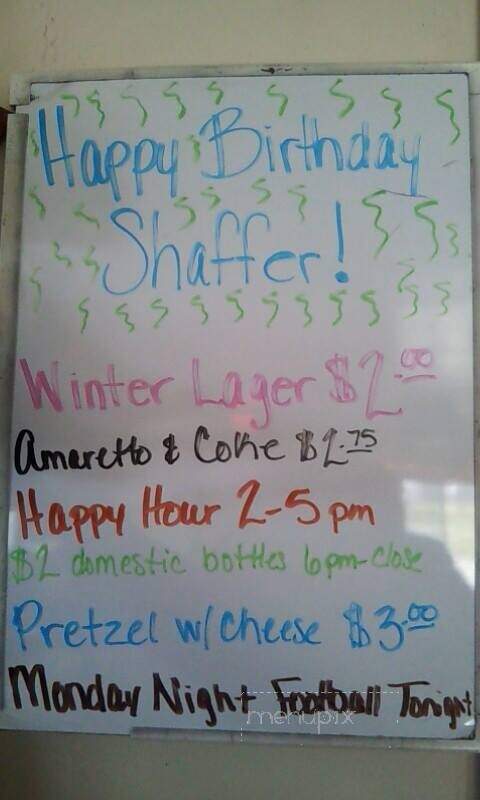 Happy Birthday
Shaffer!
Winter Lager $2.00
Amaretto & Coke $2.75
Happy Hour 2-5pm
$2 domestic bottles 6pm-close
Pretzel w/cheese $3.00
Monday Night Football Tonight
menupix